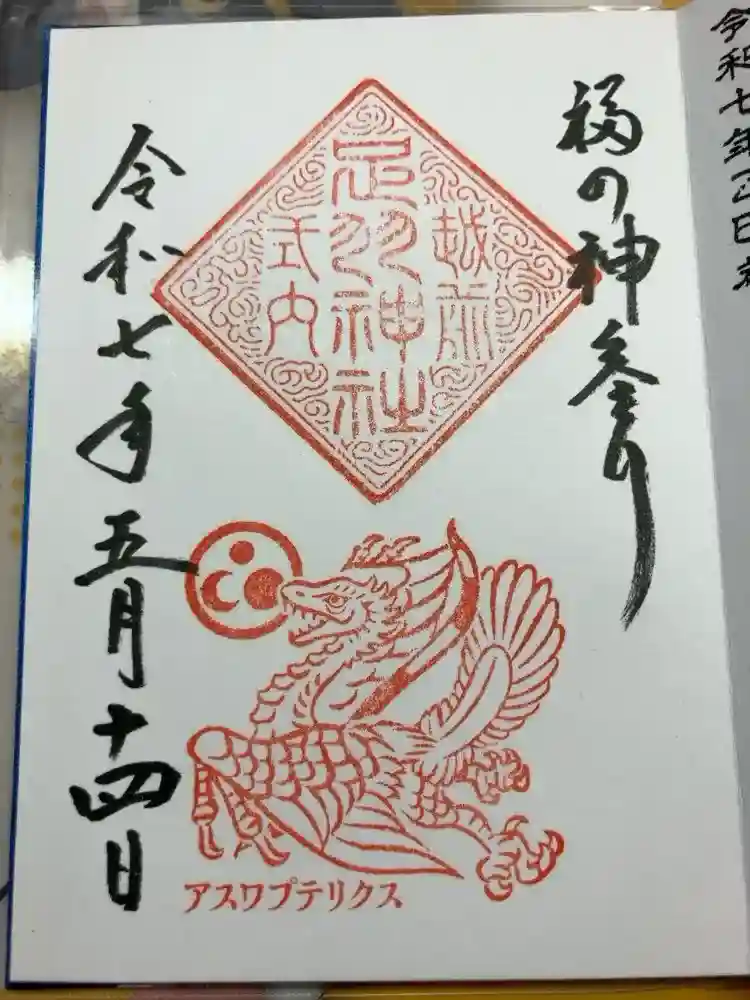 福の神参り
越前
足羽神社
式内
アスワプテリクス
令和七年五月十四日
令和七年